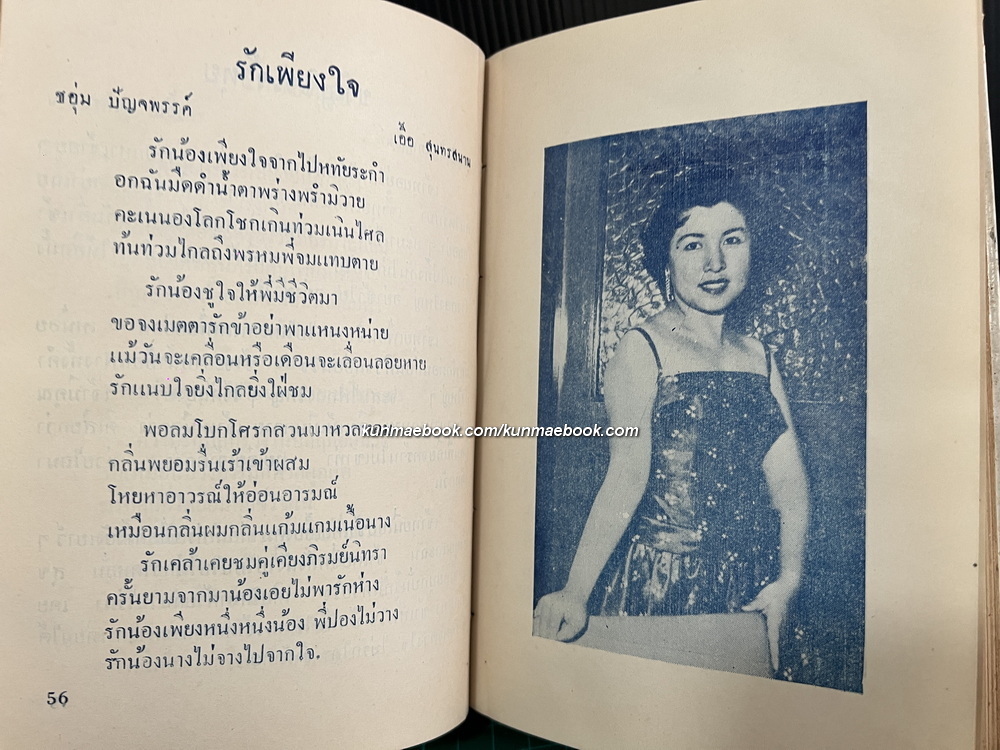 รักเพียงใจ
ชอุ่ม ปัญจพรรค์
เอื้อ สุนทรสนาน
รักน้องเพียงใจจากไปหทัยระกำ
อกฉันมืดดำน้ำตาพร่างพรำมิวาย
คะเนนองโลกโชกเกินท่วมเนินไศล
ท้นท่วมไกลถึงพรหมพี่จมแทบตาย
รักน้องชูใจให้พี่มีชีวิตมา
ขอจงเมตตารักข้าอย่าพาแหนงหน่าย
แม้วันจะเคลื่อนหรือเดือนจะเลื่อนลอยหาย
รักแนบใจยิ่งไกลยิ่งใฝ่ชม
พอลมโบกโศรกสวนมาหวล
kunmaebook.com/kunmaebook.com
กลิ่นพยอมรื่นเร้าเข้าผสม
โหยหาอาวรณ์ให้อ่อนอารมณ์
เหมือนกลิ่นผมกลิ่นแก้มแกมเนื้อนาง
รักเคล้าเคยชมคู่เคียงภิรมย์นิทรา
ครั้นยามจากมาน้องเอยไม่พารักห่าง
รักน้องเพียงหนึ่งหนึ่งน้อง พี่ปองไม่วาง
รักน้องนางไม่จางไปจากใจ.
56